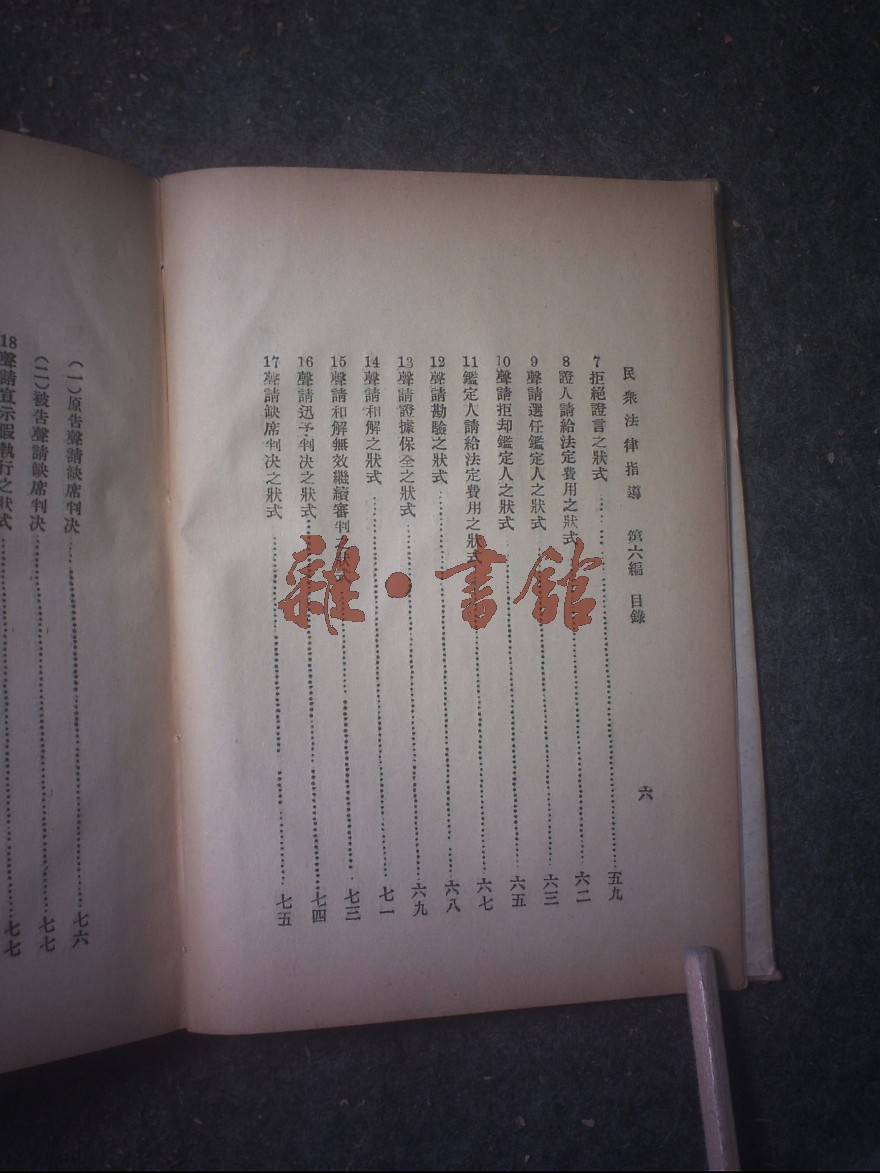 民衆法律指導 第六編 目錄
六
7拒絕證言之狀式……五九
8證人請給法定費用之狀式……六二
9聲請選任鑑定人之狀式……六三
10聲請拒却鑑定人之狀式……六五
11鑑定人請給法定費用之狀式……六七
12聲請勘驗之狀式……六八
13聲請證據保全之狀式……六九
14聲請和解之狀式……七一
15聲請和解無效繼續審判之狀式……七三
16聲請迅予判决之狀式……七四
17聲請缺席判决之狀式……七五
(一)原告聲請缺席判决……七六
(二)被告聲請缺席判决……七七
18聲請宣示假執行之狀式……七七
雜·書館